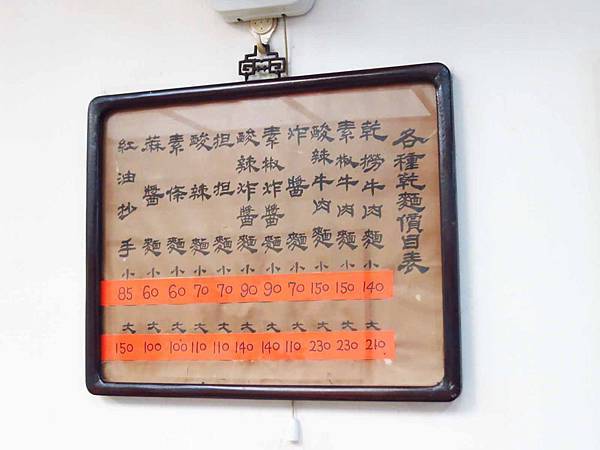 各種乾麵價目表
乾撈牛肉麵 小 140 大 210
素椒牛肉麵 小 150 大 230
酸辣牛肉麵 小 150 大 230
炸醬麵 小 70 大 110
素椒炸醬麵 小 90 大 140
酸辣炸醬麵 小 90 大 140
担担麵 小 70 大 110
酸辣麵 小 70 大 110
素條麵 小 60 大 100
蔴醬麵 小 60 大 100
紅油抄手 小 85 大 150